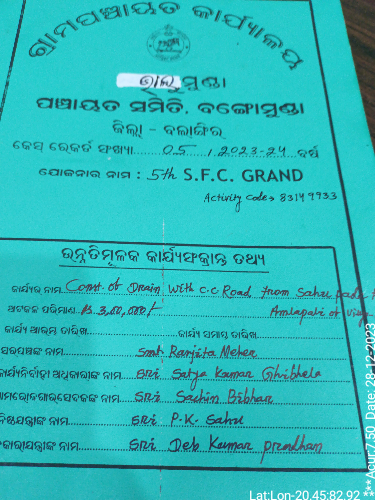 ଗ୍ରାମପଞ୍ଚାୟତ କାର୍ଯ୍ୟାଳୟ
ଭାଲୁମୁଣ୍ଡା
ପଞ୍ଚାୟତ ସମିତି, ବଙ୍ଗୋମୁଣ୍ଡା
ଜିଲ୍ଲା - ବଲାଙ୍ଗିର
କେସ୍ ରେକର୍ଡ ସଂଖ୍ୟା 05 / 2023-24 ବର୍ଷ
ଯୋଜନାର ନାମ : 5th S.F.C. GRAND
Activity code → 83149933
ଉନ୍ନତିମୂଳକ କାର୍ଯ୍ୟସଂକ୍ରାନ୍ତ ତଥ୍ୟ
କାର୍ଯ୍ୟର ନାମ Const. of Drain with C.C Road from Sahu pada
ଅଟକଳ ପରିମାଣ ₹ 3,00,000/- Amlapali of
କାର୍ଯ୍ୟ ଆରମ୍ଭ ତାରିଖ କାର୍ଯ୍ୟ ସମାପ୍ତ ତାରିଖ
ସରପଞ୍ଚଙ୍କ ନାମ Smt Ranjita Meher
କାର୍ଯ୍ୟନିର୍ବାହୀ ଅଧିକାରୀଙ୍କ ନାମ SRI Satya Kumar Chibhela
ଗ୍ରାମରୋଜଗାରସେବକଙ୍କ ନାମ SRI Sachin Bibhar
କନିଷ୍ଠଯନ୍ତ୍ରୀଙ୍କ ନାମ SRI P.K. Sahu
ସହକାରୀଯନ୍ତ୍ରୀଙ୍କ ନାମ SRI Deb Kumar Pradhan
Lat:Lon-20.45:82.92 ***Acur:7.50 Date: 28-12-2023